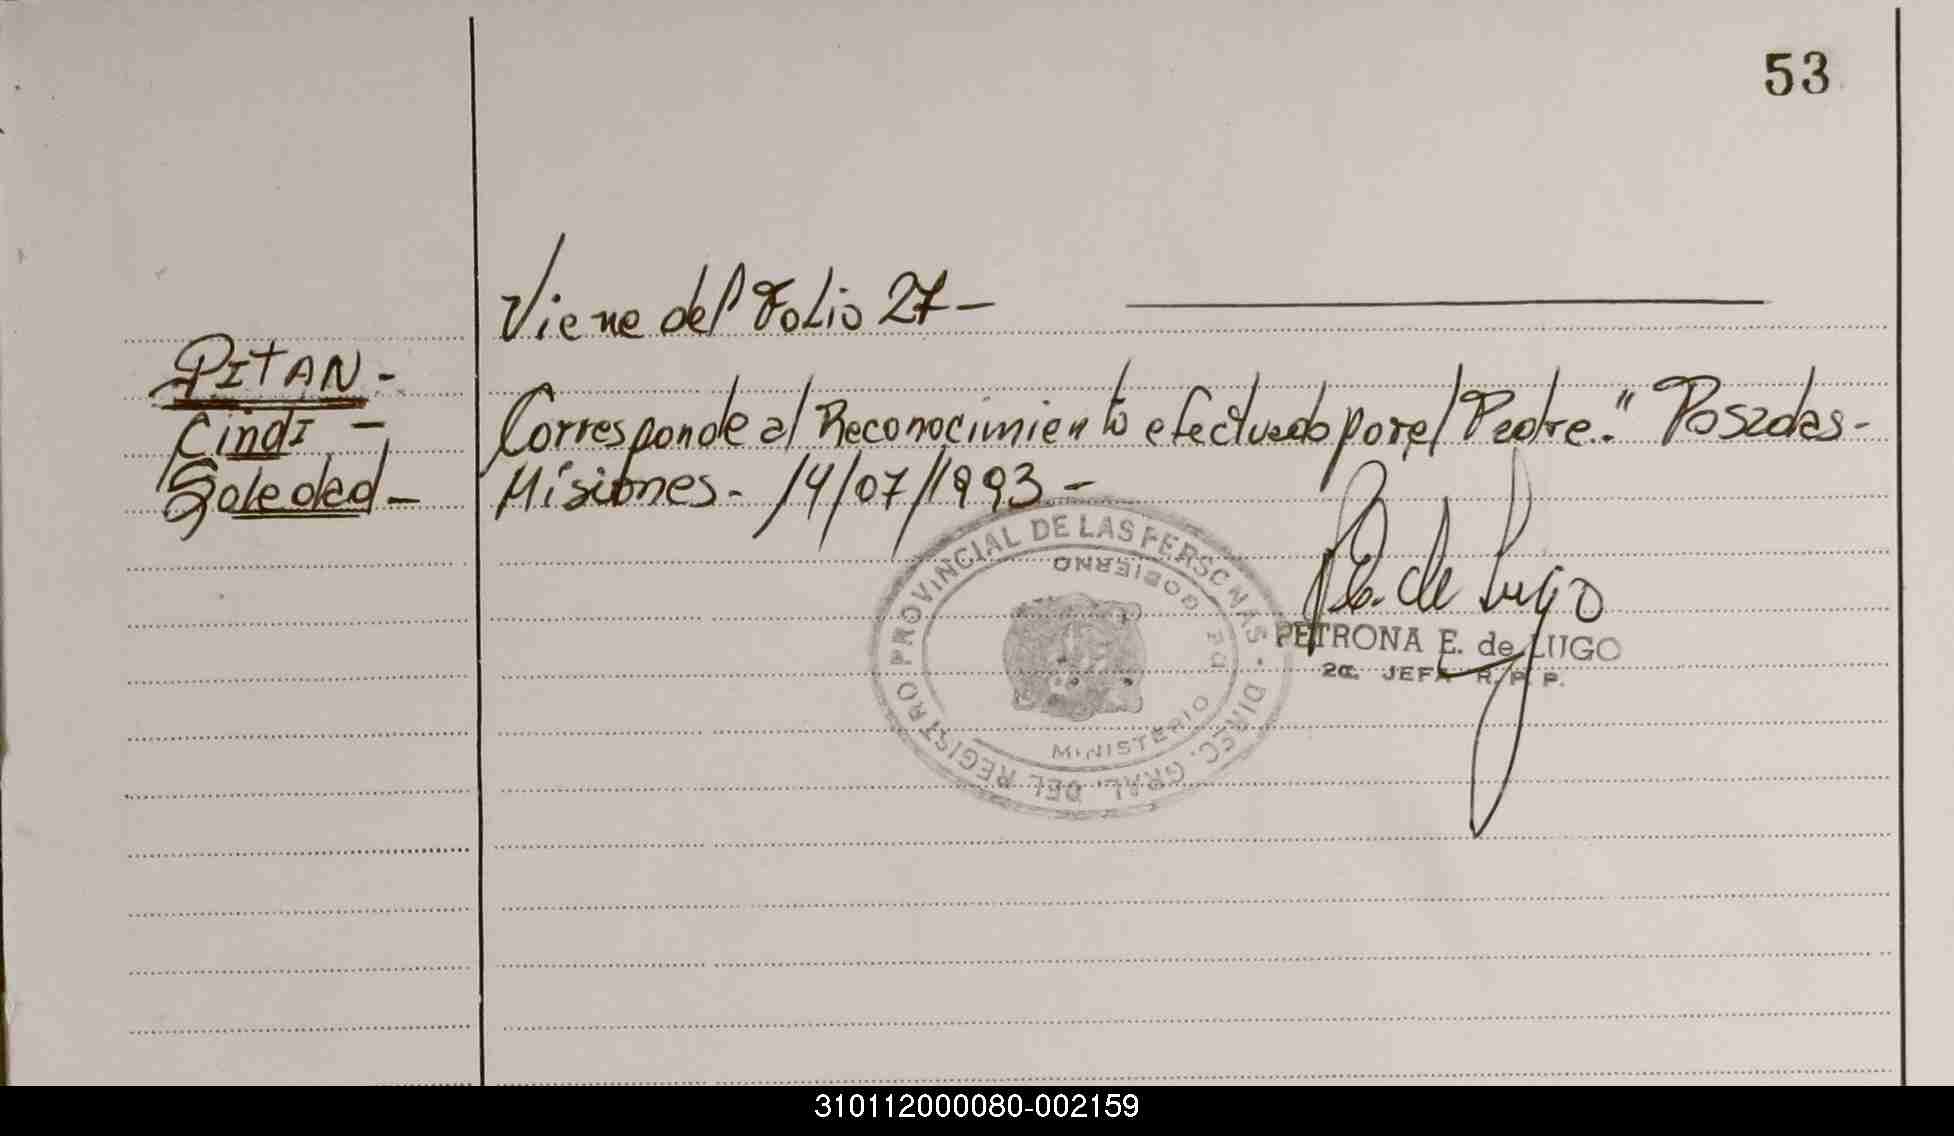 53
Viene del Folio 27-
PITAN-
Cindi -
Soledad-
Corresponde al Reconocimiento efectuado por el Padre." Posadas-
Misiones- 14/07/1993-
DIREC. GRAL. DEL REGISTRO PROVINCIAL DE LAS PERSONAS
MINISTERIO DE GOBIERNO
P.E. de Lugo
PETRONA E. de LUGO
2a. JEFA R. P. P.
310112000080-002159